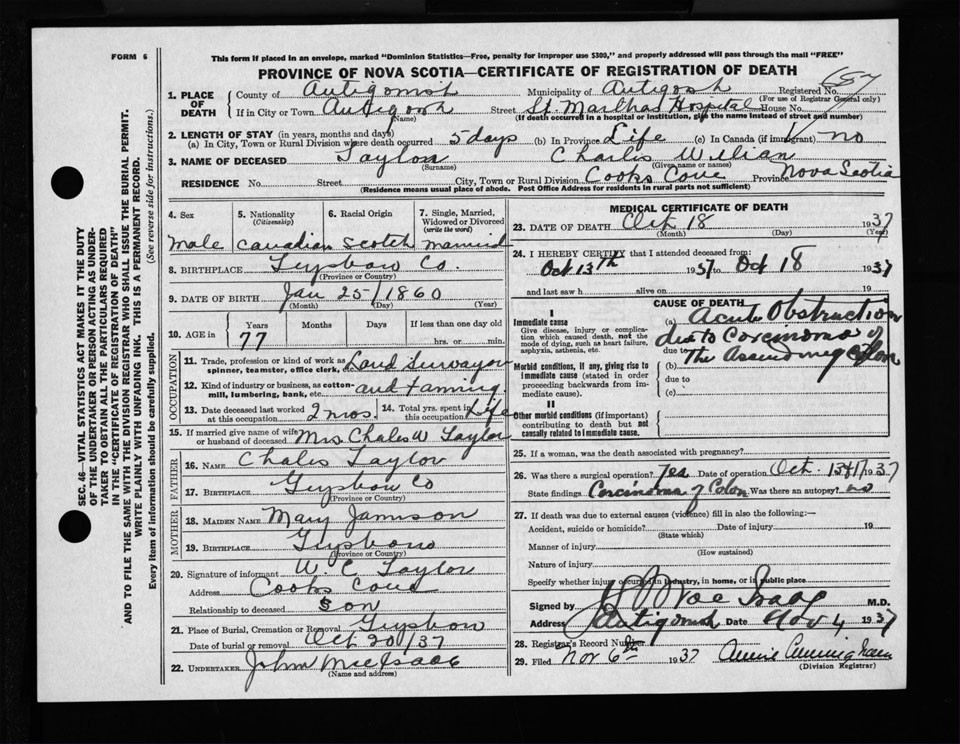 FORM 6
This form if placed in an envelope, marked "Dominion Statistics—Free, penalty for improper use $300," and properly addressed will pass through the mail "FREE"
PROVINCE OF NOVA SCOTIA—CERTIFICATE OF REGISTRATION OF DEATH
1. PLACE OF DEATH
County of Antigonish Municipality of Antigosh Registered No. 657
(For use of Registrar General only)
If in City or Town Antigosh Street St. Marthas Hospital House No.
(Name) (If death occurred in a hospital or institution, give the name instead of street and number)
2. LENGTH OF STAY (in years, months and days)
(a) In City, Town or Rural Division where death occurred 5 days (b) In Province Life (c) In Canada (if immigrant) no
3. NAME OF DECEASED Taylor Charles Welian
(Surname) (Given name or names)
RESIDENCE No. Street City, Town or Rural Division Cooks Cove Province Nova Scotia
(Residence means usual place of abode. Post Office Address for residents in rural parts not sufficient)
4. Sex 5. Nationality (Citizenship) 6. Racial Origin 7. Single, Married, Widowed or Divorced (write the word)
male Canadian Scotch married
8. BIRTHPLACE Guysboro Co.
(Province or Country)
9. DATE OF BIRTH Jan 25/1860
(Month) (Day) (Year)
10. AGE in Years Months Days If less than one day old
77 hrs. or min.
OCCUPATION
11. Trade, profession or kind of work as spinner, teamster, office clerk, Land Surveyor
12. Kind of industry or business, as cotton-mill, lumbering, bank, etc. and farming.
13. Date deceased last worked at this occupation 2 mos. 14. Total yrs. spent in this occupation Life
15. If married give name of wife or husband of deceased Mrs Chales W Taylor
FATHER
16. NAME Chales Taylor
17. BIRTHPLACE Guysboro Co
(Province or Country)
MOTHER
18. MAIDEN NAME Mary Jamison
19. BIRTHPLACE Guysboro
(Province or Country)
20. Signature of informant W. C Taylor
Address Cooks Cove
Relationship to deceased Son
21. Place of Burial, Cremation or Removal Guysboro
Date of burial or removal Oct 20/37
22. UNDERTAKER John MacIsaac
(Name and address)
MEDICAL CERTIFICATE OF DEATH
23. DATE OF DEATH Oct 18 1937
(Month) (Day) (Year)
24. I HEREBY CERTIFY that I attended deceased from:
Oct 13th 1937 to Oct 18 1937
and last saw h alive on 19
CAUSE OF DEATH
I
Immediate cause
Give disease, injury or complication which caused death, not the mode of dying, such as heart failure, asphyxia, asthenia, etc.
(a) Acute Obstruction
due to Corcinoma of
due to
The Ascending Colon
Morbid conditions, if any, giving rise to immediate cause (stated in order proceeding backwards from immediate cause.
(b)
due to
(c)
II
Other morbid conditions (if important) contributing to death but not causally related to immediate cause.
25. If a woman, was the death associated with pregnancy?
26. Was there a surgical operation? Yes Date of operation Oct. 1937
State findings Corcinoma of Colon Was there an autopsy? no
27. If death was due to external causes (violence) fill in also the following:—
Accident, suicide or homicide? Date of injury 19
(State which)
Manner of injury
(How sustained)
Nature of injury
Specify whether injury occurred in industry, in home, or in public place
Signed by M.D.
Address Antigonish Date Nov 4 1937
28. Registrar's Record Number
29. Filed Nov 6th 1937 Annie Cunningham
(Division Registrar)
SEC. 46—VITAL STATISTICS ACT MAKES IT THE DUTY
OF THE UNDERTAKER OR PERSON ACTING AS UNDER-
TAKER TO OBTAIN ALL THE PARTICULARS REQUIRED
IN THE "CERTIFICATE OF REGISTRATION OF DEATH"
AND TO FILE THE SAME WITH THE DIVISION REGISTRAR WHO SHALL ISSUE THE BURIAL PERMIT.
WRITE PLAINLY WITH UNFADING INK. THIS IS A PERMANENT RECORD.
Every item of information should be carefully supplied. (See reverse side for instructions.)